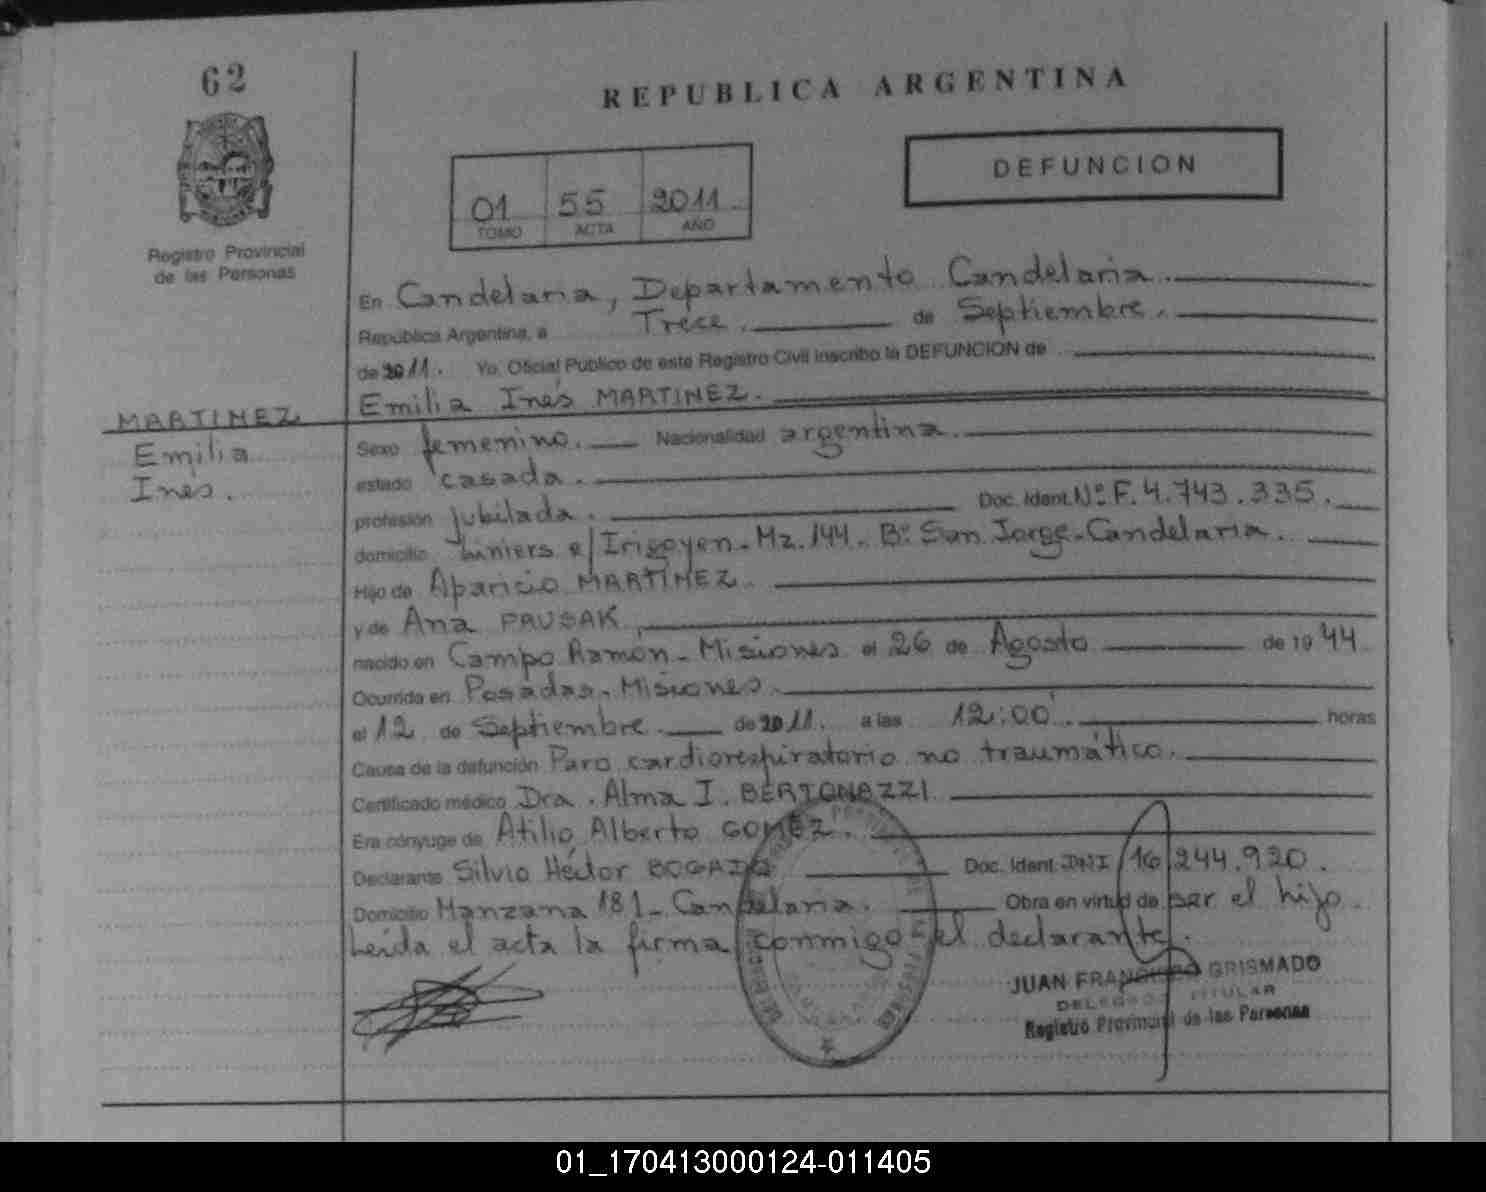 62
REPUBLICA ARGENTINA
DEFUNCION
01 55 2011
TOMO ACTA AÑO
Registro Provincial
de las Personas
En Candelaria, Departamento Candelaria.
República Argentina, a Trece. de Septiembre.
de 2011. Yo. Oficial Público de este Registro Civil inscribo la DEFUNCION de
Emilia Inés MARTINEZ.
MARTINEZ
Emilia
Ines.
Sexo femenino. Nacionalidad argentina.
estado casada.
profesión jubilada. Doc. Ident. Nº F. 4.743.335.
domicilio Liniers e/ Irigoyen - Mz. 144 - Bº San Jorge - Candelaria.
Hijo de Aparicio MARTINEZ.
y de Ana PAUSAK
nacido en Campo Ramon - Misiones el 26 de Agosto de 1944
Ocurrida en Posadas - Misiones.
el 12 de Septiembre. de 2011. a las 12:00 horas
Causa de la defunción Paro cardiorespiratorio no traumático.
Certificado médico Dra. Alma I. BERTONAZZI
Era cónyuge de Atilio Alberto GOMEZ.
Declarante Silvio Héctor BOGADO Doc. Ident. DNI 16.244.920.
Domicilio Manzana 181 - Candelaria. Obra en virtud de ser el hijo.
Leída el acta la firma conmigo el declarante.
JUAN FRANCISCO GRISMADO
DELEGADO TITULAR
Registro Provincial de las Personas
01_170413000124-011405